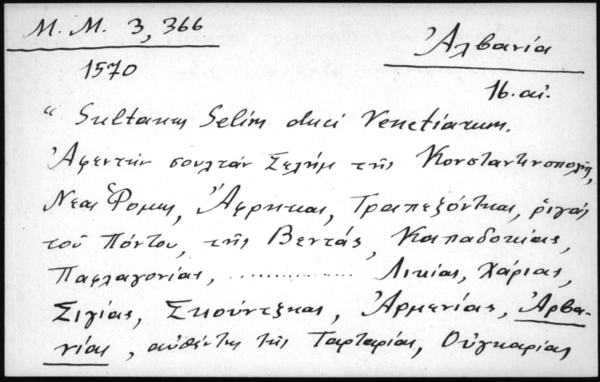 M. M. 3, 366
Ἀλβανία
1570
16. αἰ.
“ Sultanus Selim duci Venetiarum.
Ἀφεντὴν σουλτὰν Σελὴμ τῆς Κονσταντινοπολης,
Νεας Ῥομης, Ἀφρηκας, Τραπεξόντας, ῥιγας
τοῦ Πόντου, τῆς Βεντάς, Καπαδοκίας,
Παφλαγονίας, .............. Λικίας, Χάριας,
Σιγίας, Σκούντεκας, Ἀρμενίας, Ἀρβα-
νίας, αὐθέντης τῆς Ταρταρίας, Οὐγκαρίας